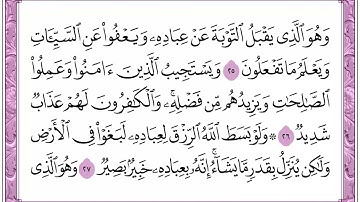 وَهُوَ ٱلَّذِى يَقْبَلُ ٱلتَّوْبَةَ عَنْ عِبَادِهِۦ وَيَعْفُوا۟ عَنِ ٱلسَّيِّـَٔاتِ
وَيَعْلَمُ مَا تَفْعَلُونَ ٢٥ وَيَسْتَجِيبُ ٱلَّذِينَ ءَامَنُوا۟ وَعَمِلُوا۟
ٱلصَّٰلِحَٰتِ وَيَزِيدُهُم مِّن فَضْلِهِۦۚ وَٱلْكَٰفِرُونَ لَهُمْ عَذَابٌ
شَدِيدٌ ٢٦ ۞ وَلَوْ بَسَطَ ٱللَّهُ ٱلرِّزْقَ لِعِبَادِهِۦ لَبَغَوْا۟ فِى ٱلْأَرْضِ
وَلَٰكِن يُنَزِّلُ بِقَدَرٍ مَّا يَشَآءُۚ إِنَّهُۥ بِعِبَادِهِۦ خَبِيرٌۢ بَصِيرٌ ٢٧ وَهُوَ ٱلَّذِى